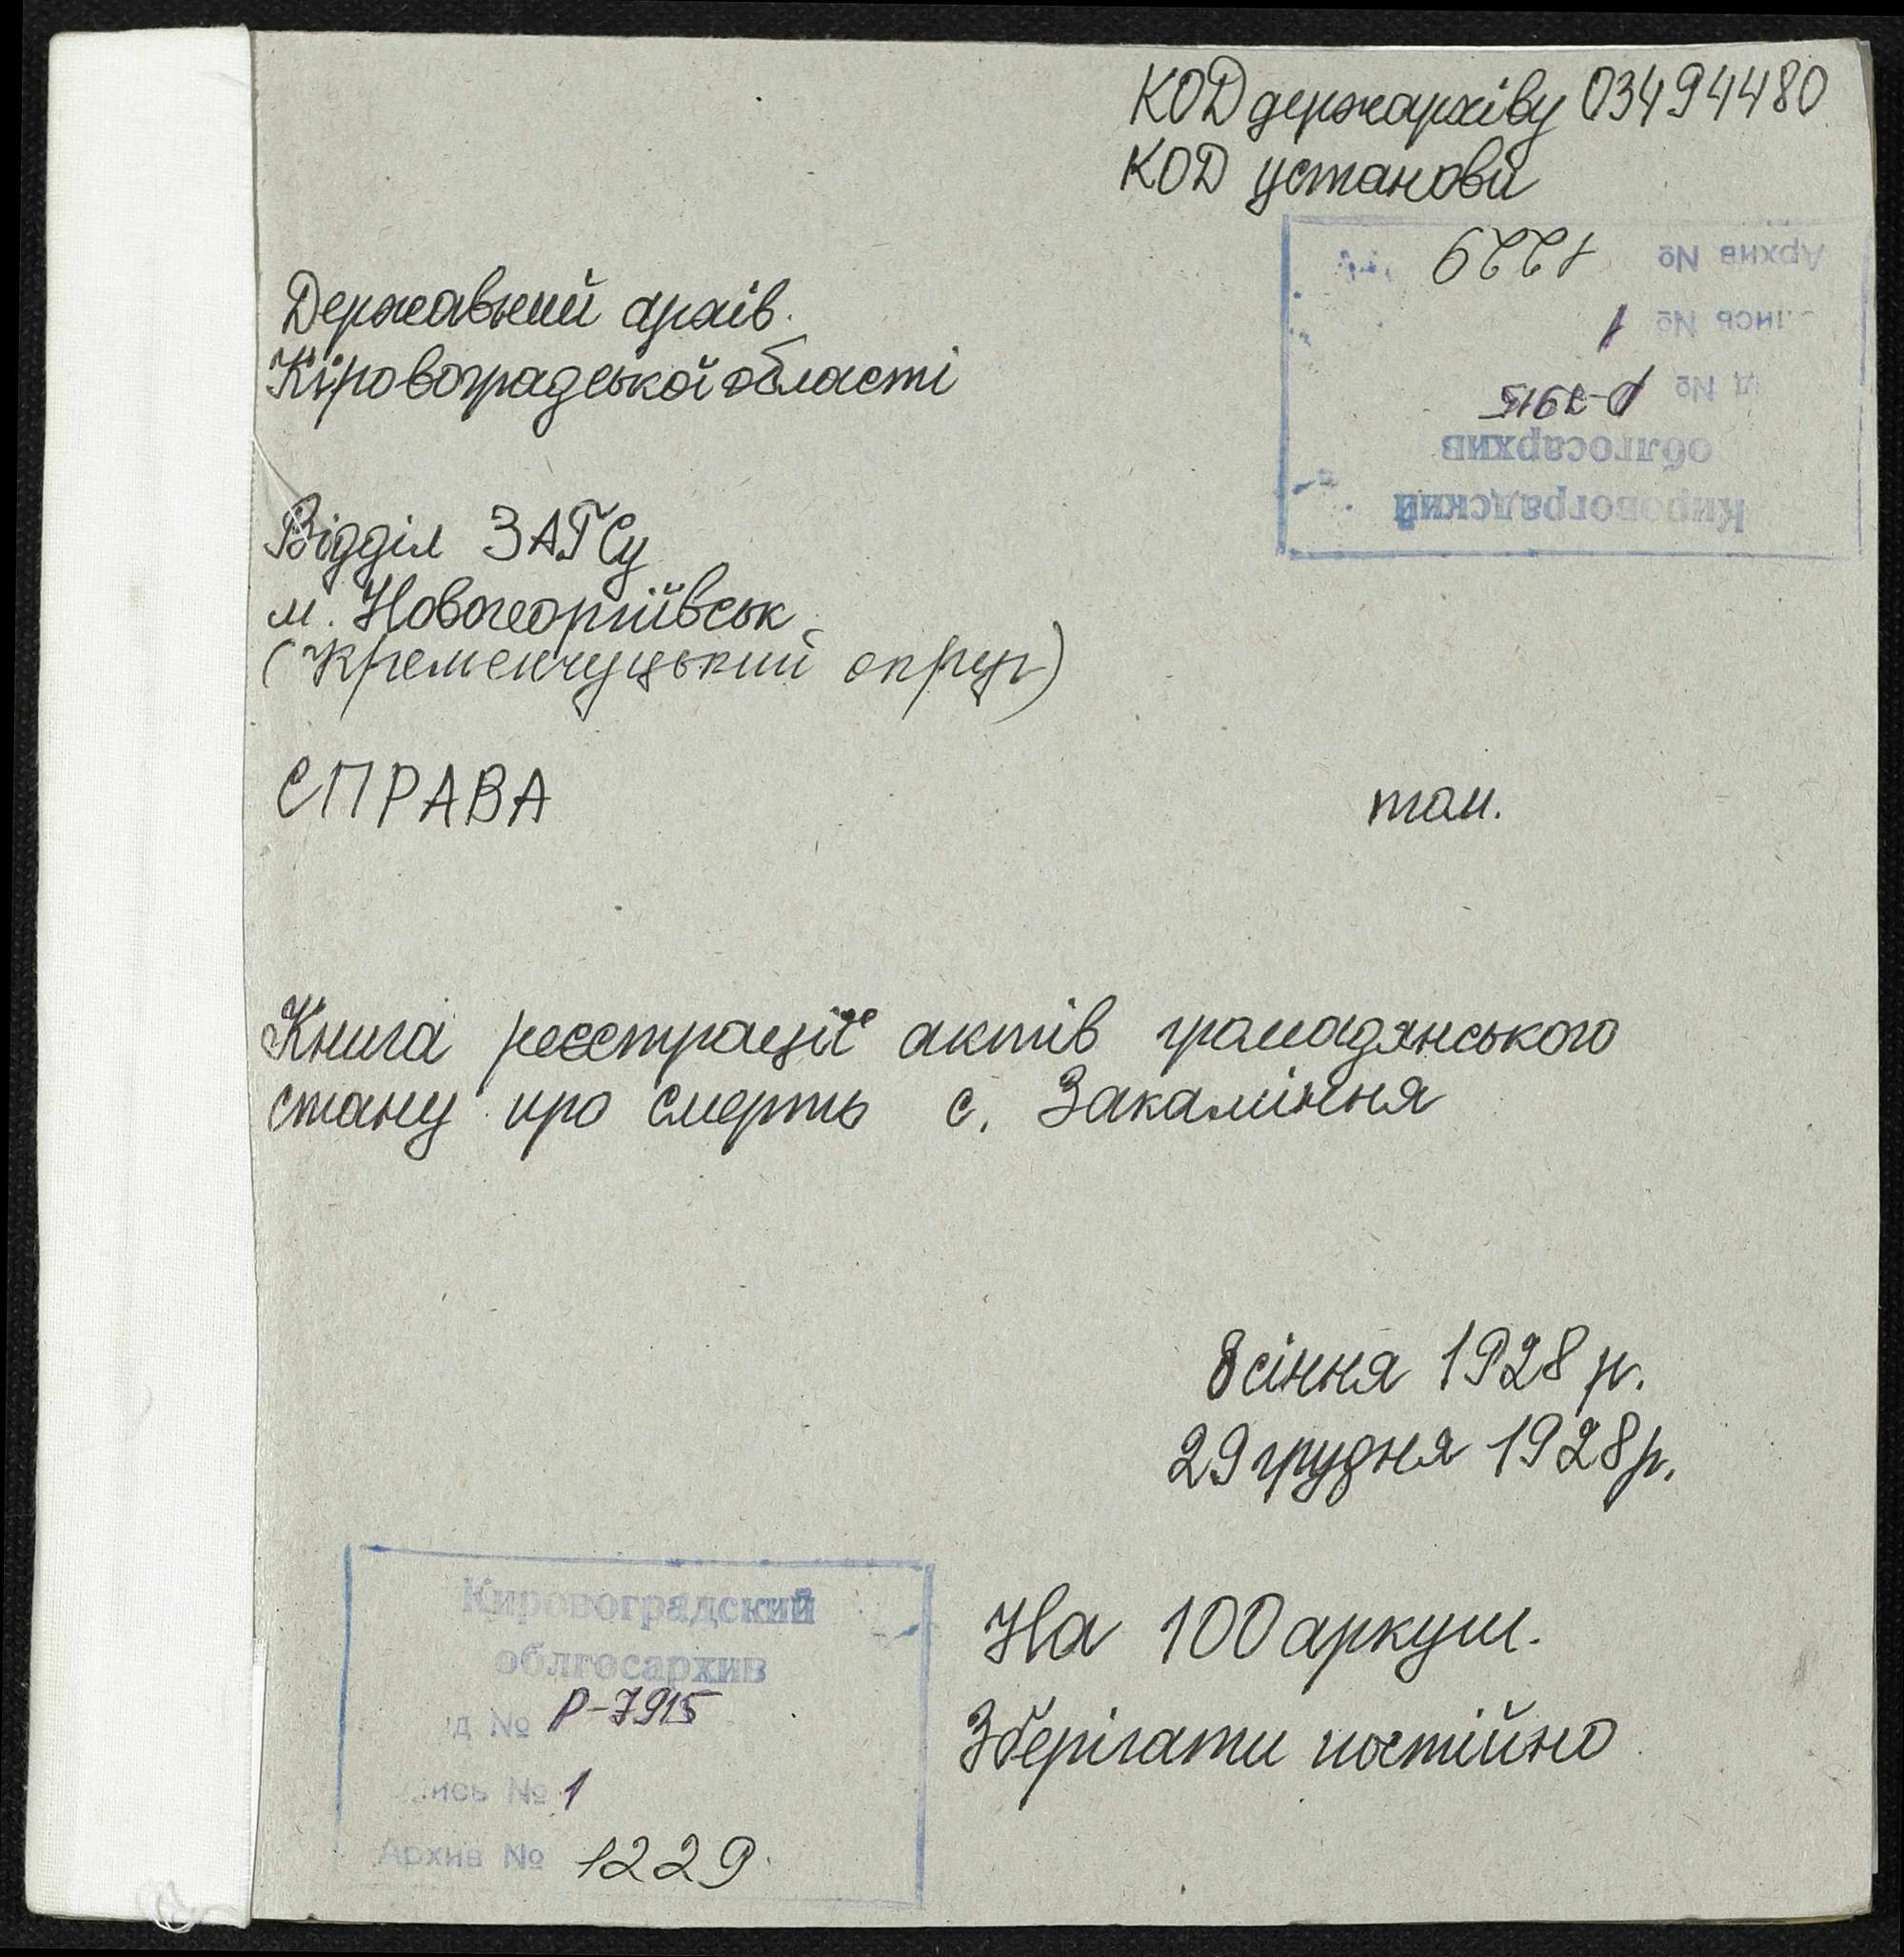 КОД держархіву 03494480
КОД установи
Архив № 1229
пись № 1
д № Р-7915
облгосархив
Кировоградский
Державний архів
Кіровоградської області
Відділ ЗАГСу
м. Новогеоргіївськ
(Кременчуцький округ)
СПРАВА том.
Книга реєстрації актів громадянського
стану про смерть с. Закаміння
8 січня 1928 р.
29 грудня 1928 р.
Кировоградский
облгосархив
д № Р-7915
пись № 1
Архив № 1229
На 100 аркуш.
Зберігати постійно